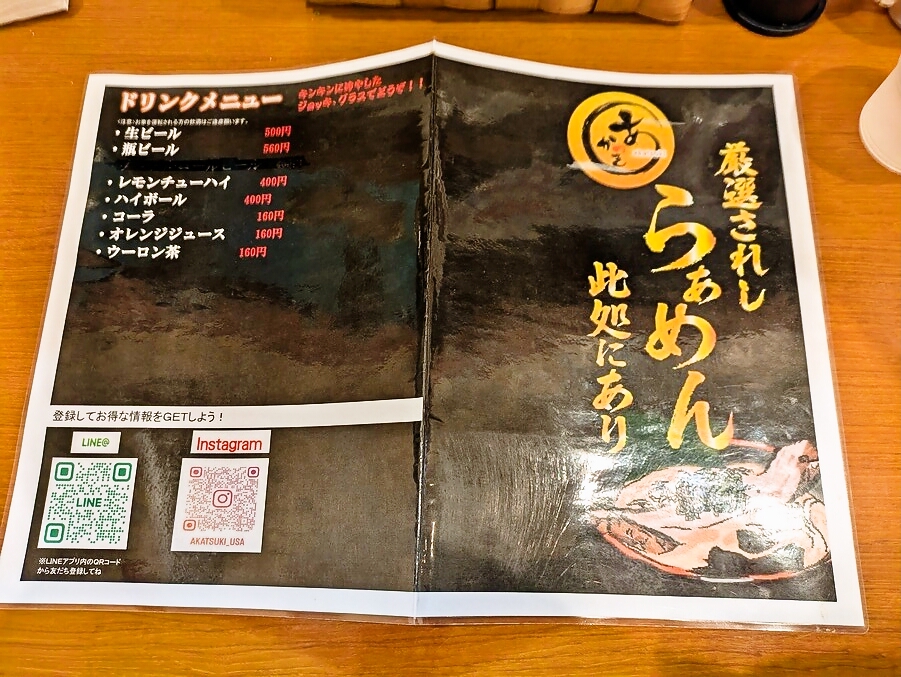 ドリンクメニュー
キンキンに冷やした
ジョッキ、グラスでどうぞ!!
(注意)お車を運転される方の飲酒はご遠慮願います。
・生ビール 500円
・瓶ビール 560円
・レモンチューハイ 400円
・ハイボール 400円
・コーラ 160円
・オレンジジュース 160円
・ウーロン茶 160円
登録してお得な情報をGETしよう!
LINE@
LINE
※LINEアプリ内のQRコード
から友だち登録してね
Instagram
AKATSUKI_USA
あかつき
厳選されし
らぁめん
此処にあり